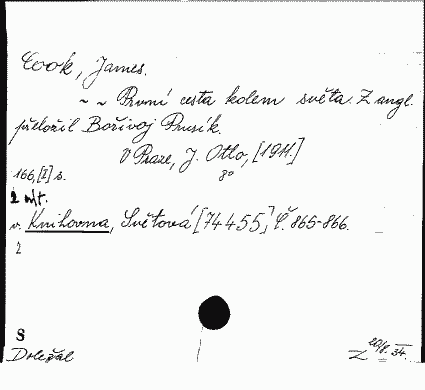 Cook, James.
~ ~ První cesta kolem světa. Z angl.
přeložil Bořivoj Prusík.
V Praze, J. Otto, [1911.]
166,[I] s. 8°
2 výt.
v. Knihovna, Světová [74455,] Č. 865-866.
2
S
Doležal
20/8. 34.